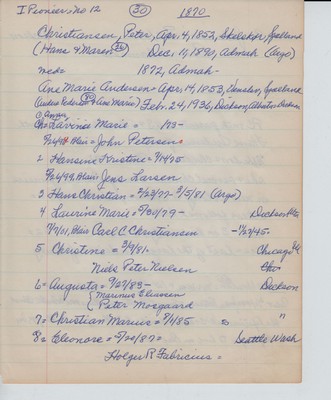 I Pioneer No 12 (30) 1870
Christiansen, Peter, Apr. 4, 1852, Skelskør, Sjælland
(Hans & Maren 24) Dec. 11, 1890, Admah (Argo)
med= 1872, Admah-
Ane Marie Andersen- Apr. 14, 1853, Sjælland
Feb. 24, 1936, Dickson, Alberta
Anna
Lavinee Marie = 193-
Blair = John Petersen
2 Hansine Kristine = 
Blair Jens Larsen
3 Hans Christian = 2/23/77- 3/5/81 (Argo)
4 Laurine Marie = 5/30/79- Dickson
9/7/01, Blair Carl C Christiansen -1/23/45-
5 Christine = 3/9/81- Chicago
Niels Peter Nielsen
6= Augusta = 9/27/83- Dickson
Marinus Eliassen
Peter Mosgaard
7= Christian Marius = 8/1/85 "
8= Eleonore = 5/20/87= Seattle Wash
Holger R Fabricius =